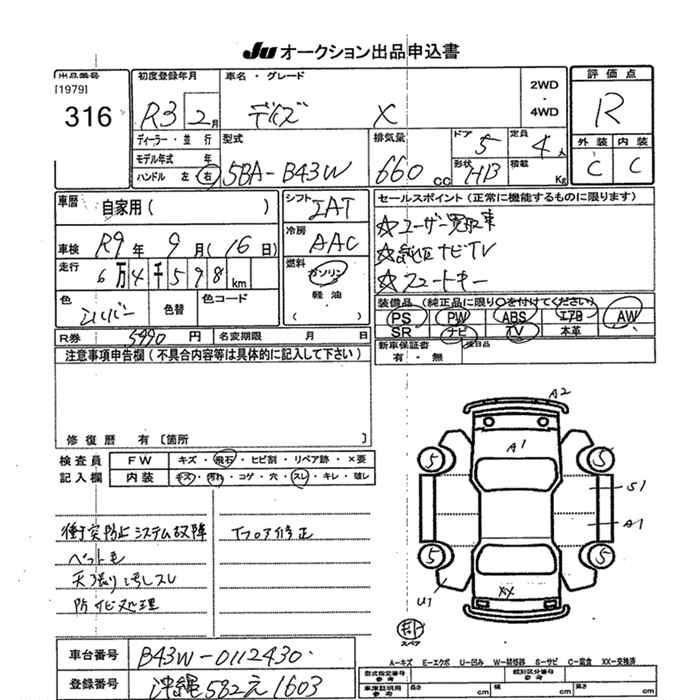 JU オークション出品申込書
出品番号
[1979]
316
初度登録年月
R3 2 月
ディーラー・並行
モデル年式 年
ハンドル 左 右
車名・グレード
デイズ X
2WD
・
4WD
評価点
R
外装 内装
C C
型式
5BA-B43W
排気量
660 cc
ドア
5
定員
4 人
形状
HB
積載
Kg
車歴
自家用( )
車検 R9 年 9 月 (16 日)
走行 6万4千598 km
色
シルバー
色替
色コード
シフト
IAT
冷房
AAC
燃料
ガソリン
軽油
( )
セールスポイント (正常に機能するものに限ります)
☆ユーザー買取車
☆純正ナビTV
☆スマートキー
装備品 (純正品に限り○を付けてください)
PS PW ABS エアB AW
SR ナビ TV 本革
新車保証書
有・無
後日品
R券 5990 円
名変期限 月 日
注意事項申告欄(不具合内容等は具体的に記入して下さい)
修復歴 有 [箇所 ]
検査員
記入欄
FW キズ・飛石・ヒビ割・リペア跡・×要
内装 キズ・汚れ・コゲ・穴・スレ・キレ・破レ
衝突防止システム故障
ペット毛
天張り汚レスレ
防サビ処理
Fフロア修正
A2
A1
5
5
S1
A1
5
5
U1
XX
スペア
車台番号 B43W-0112430
登録番号 沖縄582え1603
A-キズ E-エクボ U-凹み W-補修器 S-サビ C-腐食 XX-交換済
型式指定番号
参考
類別区分番号
参考
車庫証明用
参考
長さ cm
幅 cm
高さ cm